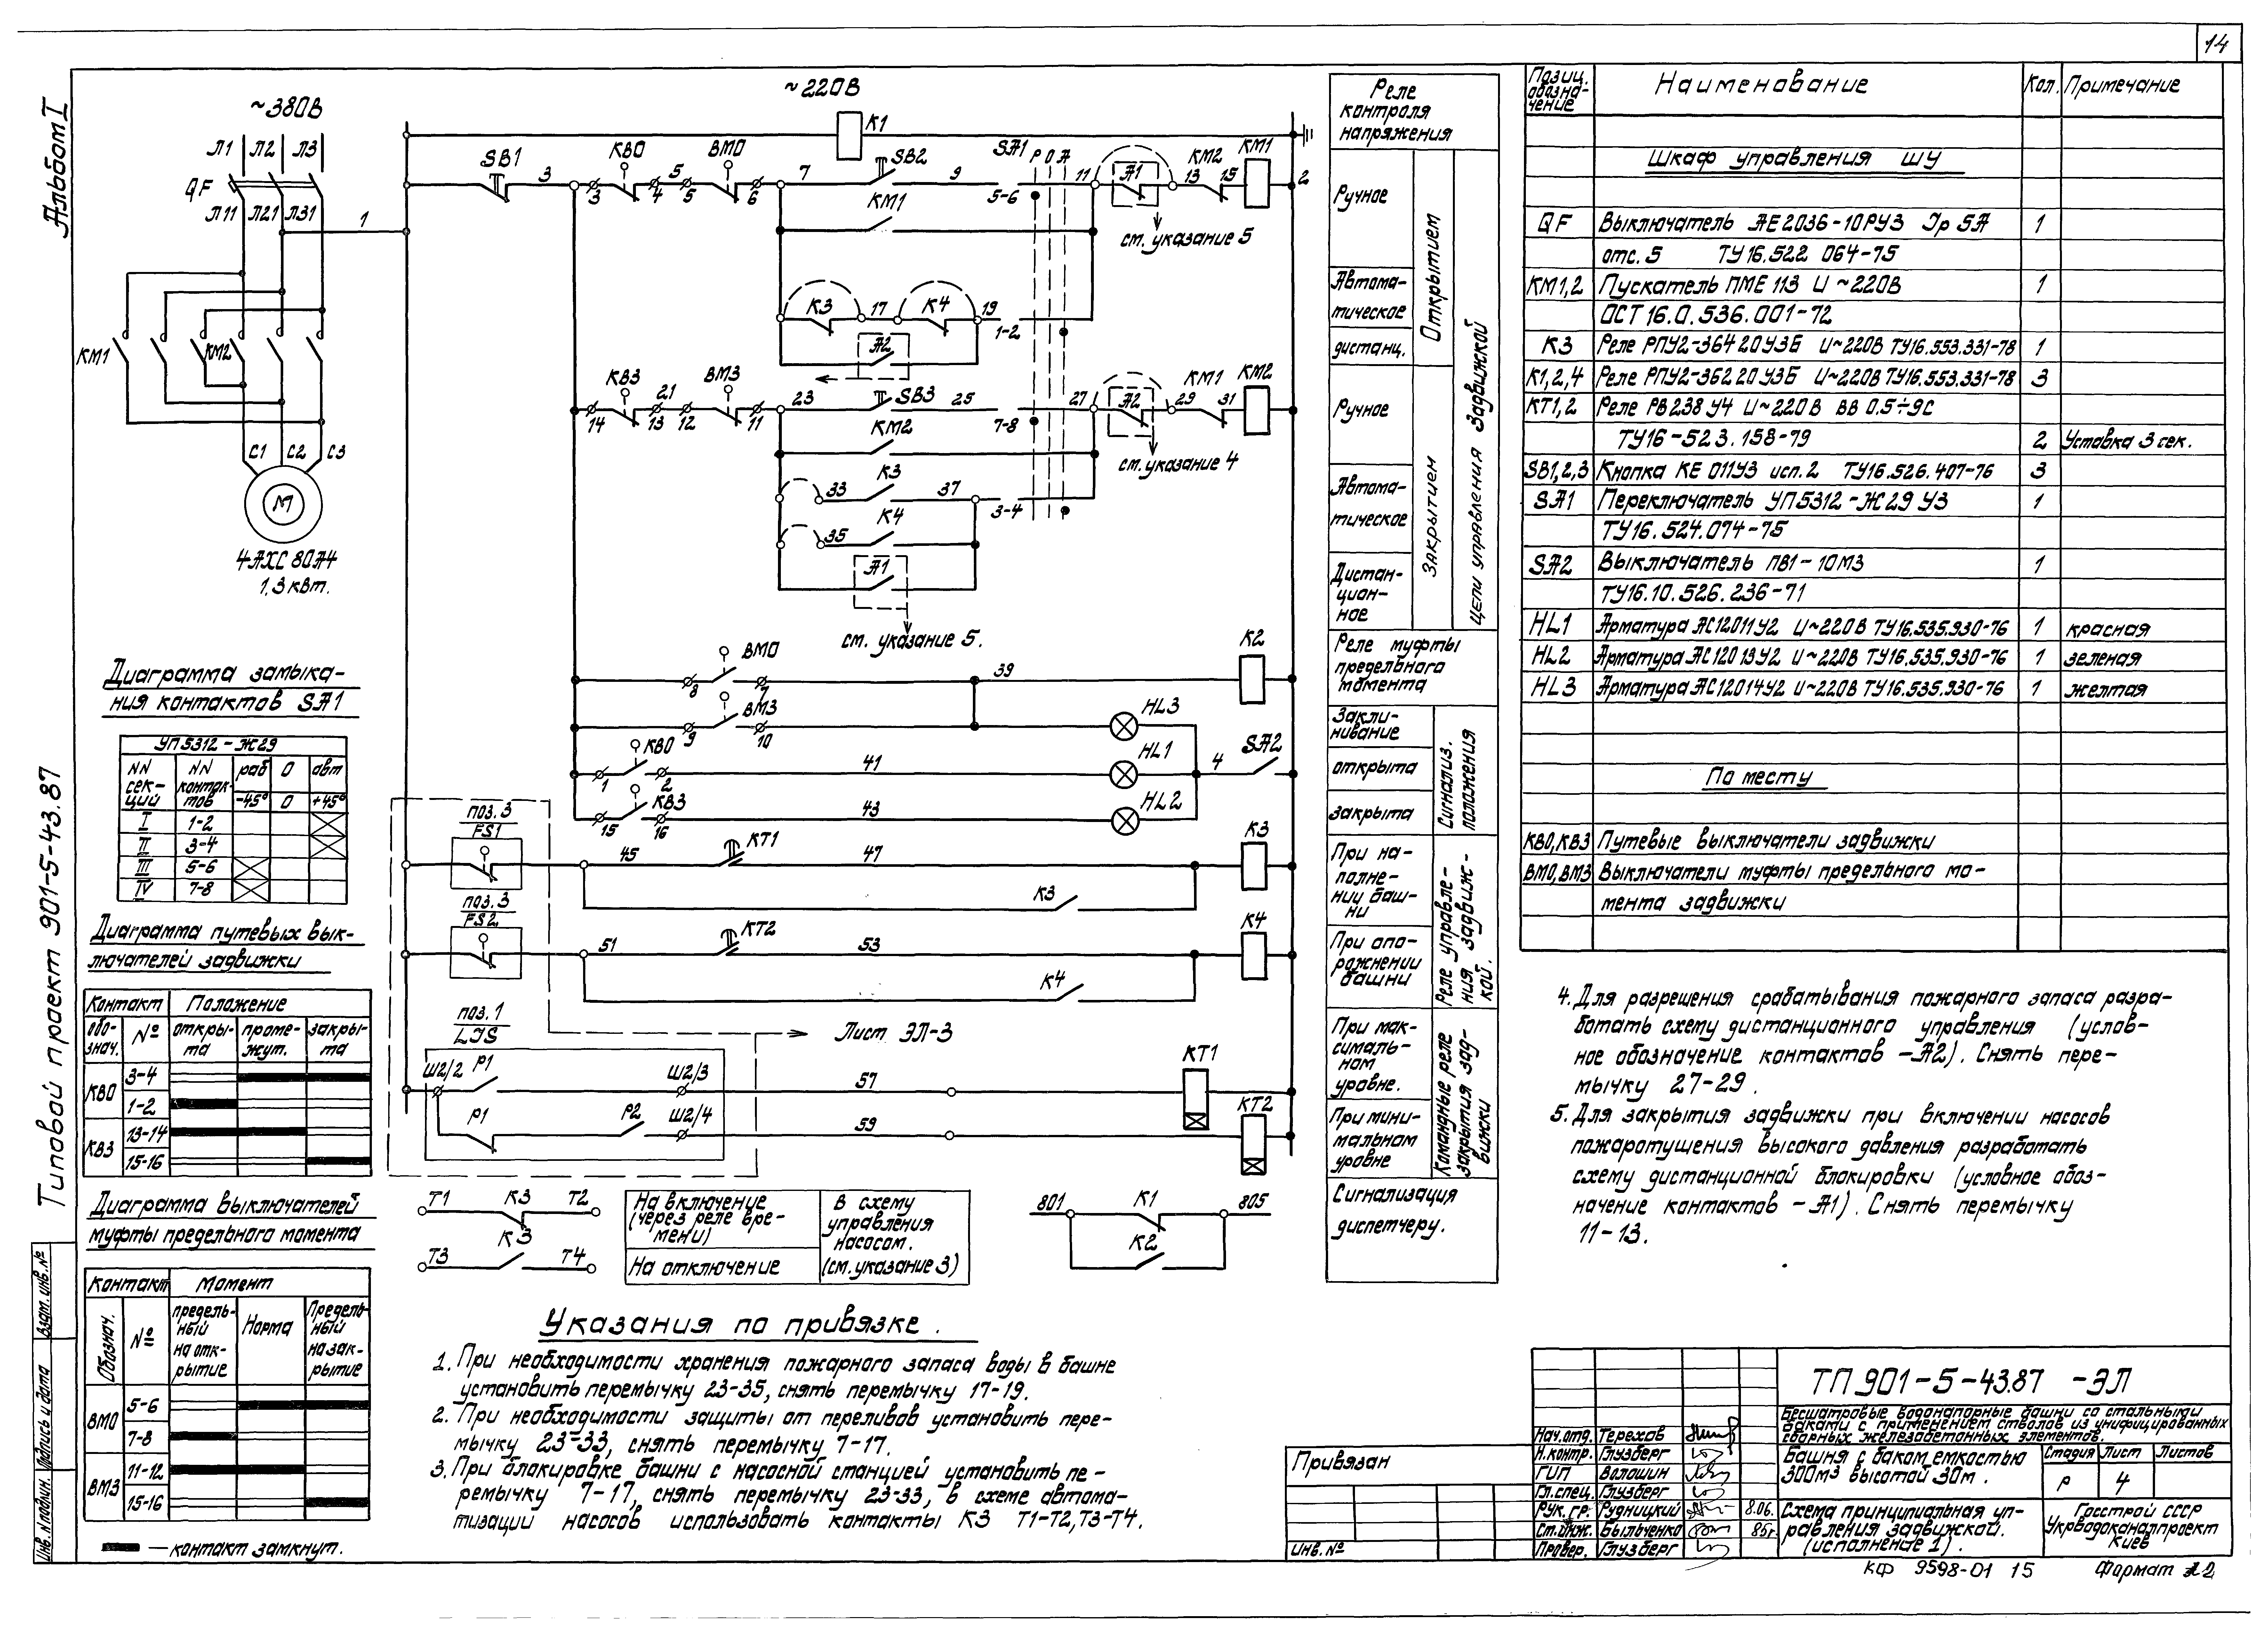 14
Альбом I
Типовой проект 901-5-43.87
Инв. N подлин. Подпись и дата Взам. инв. №
~380В
Л1 Л2 Л3
QF
Л11 Л21 Л31
1
КМ1 КМ2
С1 С2 С3
М
4АХС 80А4
1,3 квт.
~220В
К1
SB1 3 КВО 5 ВМО 7 SB2 9 SA1 Р О А 11 А1 КМ2 КМ1
3 4 5 6 5-6 13 15 2
КМ1
см. указание 5
К3 17 К4 19
1-2
А2
КВЗ 21 ВМЗ 23 SB3 25 27 А2 КМ1 КМ2
14 13 12 11 7-8 29 31
КМ2
см. указание 4
33 К3 37
3-4
35 К4
А1
см. указание 5.
ВМО 39 К2
8 7
ВМЗ HL3
9 10
КВО 41 HL1 4 SA2
1 2
КВЗ 43 HL2
15 16
поз. 3
FS1 45 КТ1 47 К3
К3
поз. 3
FS2 51 КТ2 53 К4
К4
поз. 1
LIS
Лист ЭЛ-3
Ш2/2 Р1 Ш2/3 57 КТ1
Р1 Р2 Ш2/4 59 КТ2
Т1 К3 Т2
Т3 К3 Т4
На включение
(через реле вре-
мени)
На отключение
В схему
управления
насосом.
(см. указание 3)
801 К1 805
К2
Реле
контроля
напряжения
Ручное
Автома-
тическое
дистанц.
Открытием
Ручное
Автома-
тическое
Дистан-
цион-
ное
Закрытием
Цепи управления задвижкой
Реле муфты
предельного
момента
Закли-
нивание
открыта
закрыта
Сигнализ.
положения
При на-
полне-
нии баш-
ни
При опо-
рожнении
башни
Реле управле-
ния задвиж-
кой.
При мак-
сималь-
ном
уровне.
При мини-
мальном
уровне
Командные реле
закрытия зад-
вижки
Сигнализация
диспетчеру.
Диаграмма замыка-
ния контактов SA1
УП5312-Ж29
NN сек-ций NN контак-тов раб О авт
-45° 0 +45°
I 1-2
II 3-4
III 5-6
IV 7-8
Диаграмма путевых вык-
лючателей задвижки
Контакт Положение
обо-знач. № откры-та проме-жут. закры-та
КВО 3-4
1-2
КВЗ 13-14
15-16
Диаграмма выключателей
муфты предельного момента
Контакт Момент
Обознач. № предель-ный на отк-рытие Норма Предель-ный на зак-рытие
ВМО 5-6
7-8
ВМЗ 11-12
15-16
— контакт замкнут.
Указания по привязке.
1. При необходимости хранения пожарного запаса воды в башне
установить перемычку 23-35, снять перемычку 17-19.
2. При необходимости защиты от переливов установить пере-
мычку 23-33, снять перемычку 7-17.
3. При блокировке башни с насосной станцией установить пе-
ремычку 7-17, снять перемычку 23-33, в схеме автома-
тизации насосов использовать контакты К3 Т1-Т2, Т3-Т4.
Позиц. обозна-чение Наименование Кол. Примечание
Шкаф управления ШУ
QF Выключатель АЕ2036-10РУЗ Iр 5А 1
отс. 5 ТУ16.522 064-75
КМ1,2 Пускатель ПМЕ 113 U ~220В 1
ОСТ 16.0.536.001-72
К3 Реле РПУ2-36420У3Б U~220В ТУ16.553.331-78 1
К1,2,4 Реле РПУ2-36220У3Б U~220В ТУ16.553.331-78 3
КТ1,2 Реле РВ238У4 U~220В ВВ 0.5÷9С
ТУ16-523.158-79 2 Уставка 3 сек.
SB1,2,3 Кнопка КЕ 011У3 исп. 2 ТУ16.526.407-76 3
SA1 Переключатель УП5312-Ж29 У3 1
ТУ16.524.074-75
SA2 Выключатель ПВ1-10М3 1
ТУ16.10.526.236-71
HL1 Арматура АС12011У2 U~220В ТУ16.535.930-76 1 красная
HL2 Арматура АС12013У2 U~220В ТУ16.535.930-76 1 зеленая
HL3 Арматура АС12014У2 U~220В ТУ16.535.930-76 1 желтая
По месту
КВО, КВЗ Путевые выключатели задвижки
ВМО, ВМЗ Выключатели муфты предельного мо-
мента задвижки
4. Для разрешения срабатывания пожарного запаса разра-
ботать схему дистанционного управления (услов-
ное обозначение контактов -А2). Снять пере-
мычку 27-29.
5. Для закрытия задвижки при включении насосов
пожаротушения высокого давления разработать
схему дистанционной блокировки (условное обоз-
начение контактов -А1). Снять перемычку
11-13.
Привязан
Инв. №
Нач. отд. Терехов
Н. контр. Глузберг
ГИП Волошин
Гл. спец. Глузберг
Рук. гр. Рудницкий 8.06.
Ст. инж. Быльченко 86г
Провер. Глузберг
ТП 901-5-43.87 -ЭЛ
Бесшатровые водонапорные башни со стальными
баками с применением стволов из унифицированных
сборных железобетонных элементов.
Башня с баком емкостью
300м3 высотой 30м.
Стадия Лист Листов
Р 4
Схема принципиальная уп-
равления задвижкой.
(исполнение 1).
Госстрой СССР
Укрводоканалпроект
Киев
КФ 9598-01 15 Формат А2